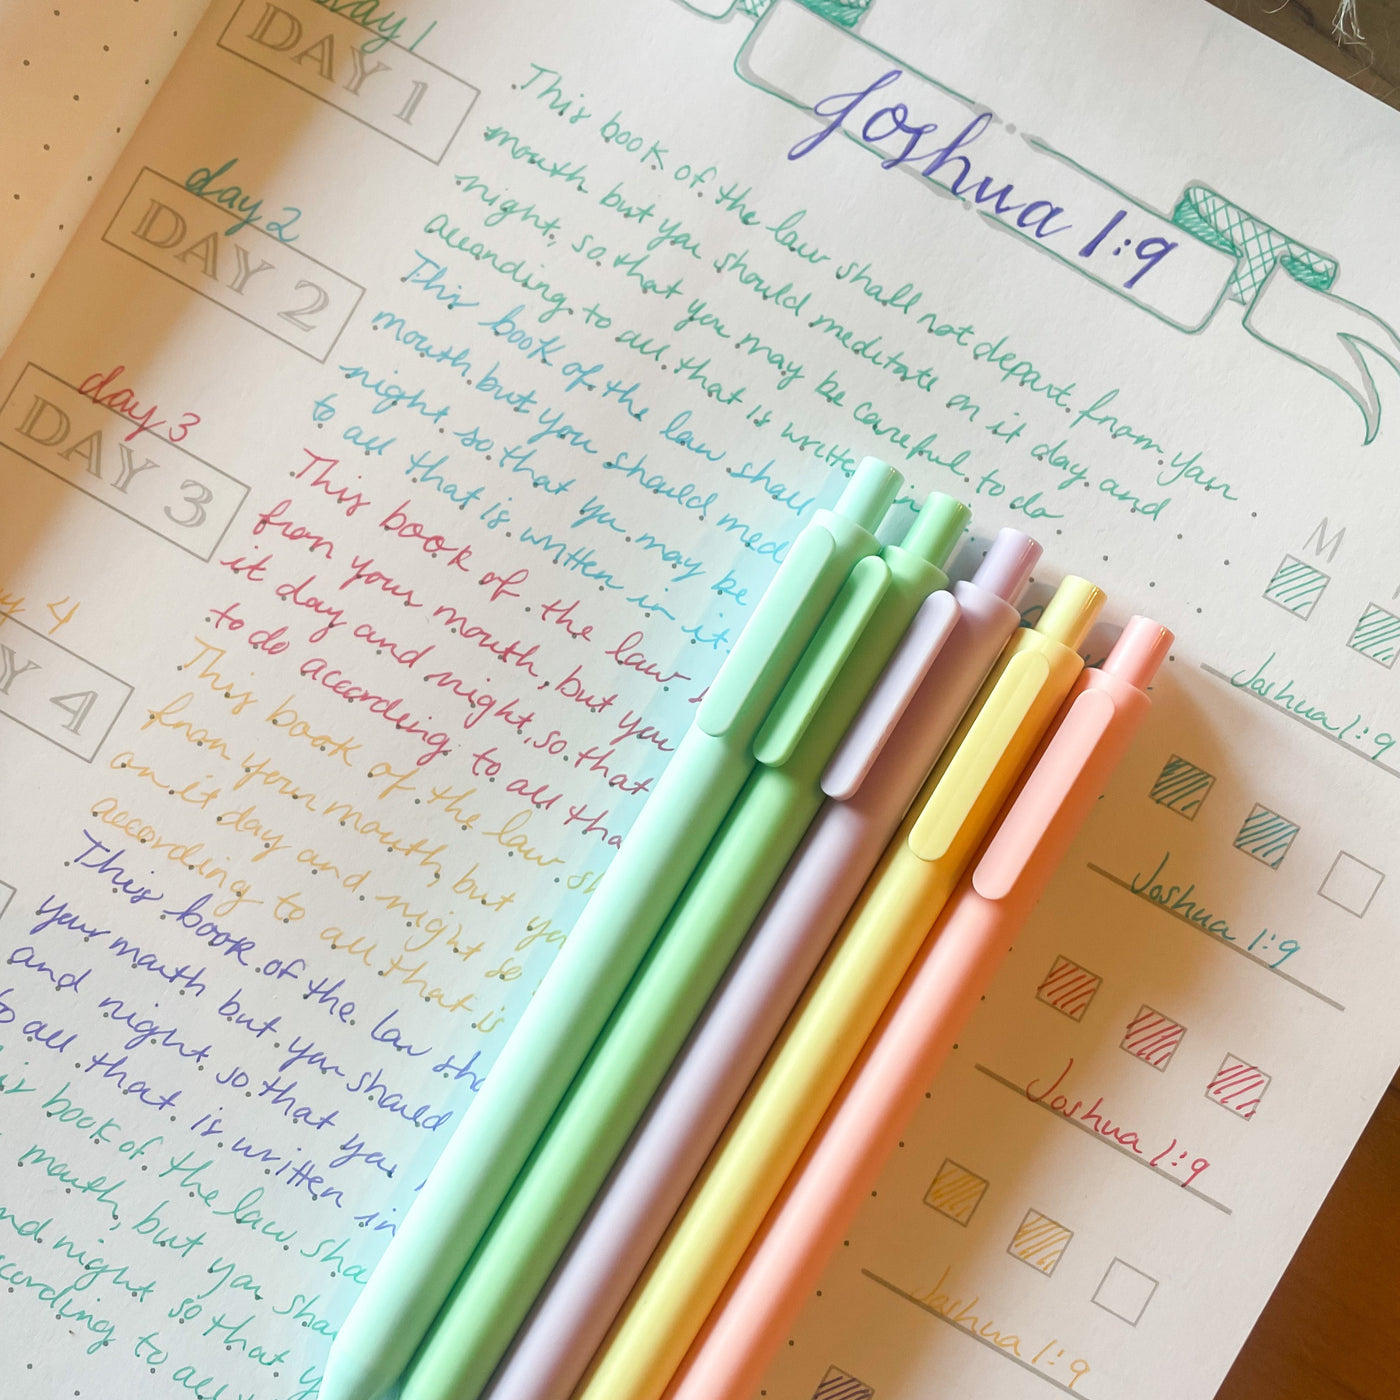 Joshua 1:9
day 1
DAY 1
This book of the law shall not depart from your
mouth but you should meditate on it day and
night, so that you may be careful to do
according to all that is written in
day 2
DAY 2
This book of the law shall
mouth but you should med
night so that you may be
to all that is written in it.
day 3
DAY 3
This book of the law
from your mouth, but you
it day and night, so that
to do according to all tha
4
Y 4
This book of the law sh
from your mouth, but yo
on it day and night so
according to all that is
This book of the law sha
your mouth but you should
and night so that you
to all that is written in
book of the law sha
mouth, but you shou
night so that y
according to all t
M
Joshua 1:9
Joshua 1:9
Joshua 1:9
Joshua 1:9